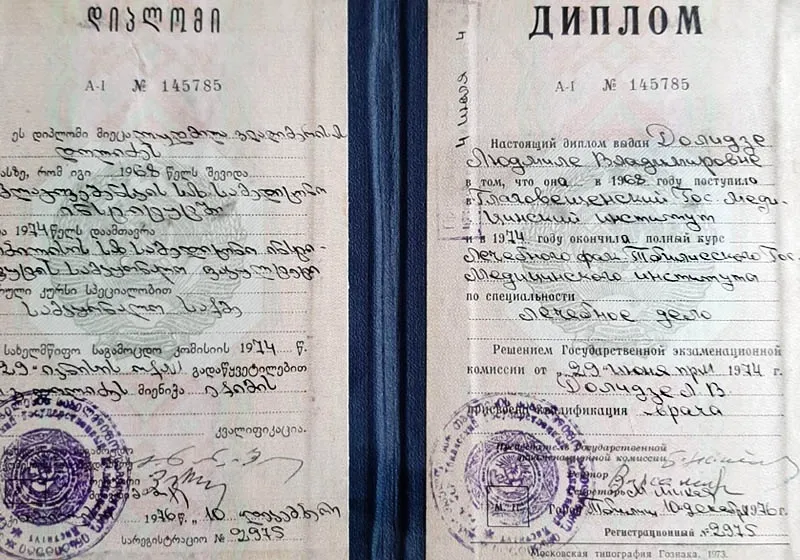 დიპლომი
А-I № 145785
ეს დიპლომი მიეცა ლუდმილა ვლადიმერის ა
დოლიძეს
ასზე, რომ იგი 1968 წელს შევიდა
ინსტიტუტში
1974 წელს დაამთავრა
თბილისის სახ. სამედიცინო ინსტი-
ტუტის სამკურნალო ფაკულტეტი
რული კურსი სპეციალობით
სამკურნალო საქმე
სახელმწიფო საგამოცდო კომისიის 1974 წ.
29 ივნისის გადაწყვეტილებით
დოლიძეს მიენიჭა ექიმის
კვალიფიკაცია.
1976 წ. 10 დეკემბერი
სარეგისტრაციო № 2975
ДИПЛОМ
А-I № 145785
4 июля 4
Настоящий диплом выдан Долидзе
Людмиле Владимировне
в том, что она в 1968 году поступила
в Благовещенский Гос. меди-
цинский институт
и в 1974 году окончила полный курс
лечебного фак. Тбилисского Гос.
медицинского института
по специальности
лечебное дело
Решением Государственной экзаменационной
комиссии от „29 июня 1974 г.
Долидзе Л В
присвоена квалификация врача
Председатель Государственной
экзаменационной комиссии
Ректор
Секретарь
М. П.
Город Тбилиси 10 декабря 1976 г.
Регистрационный № 2975
Московская типография Гознака. 1973.